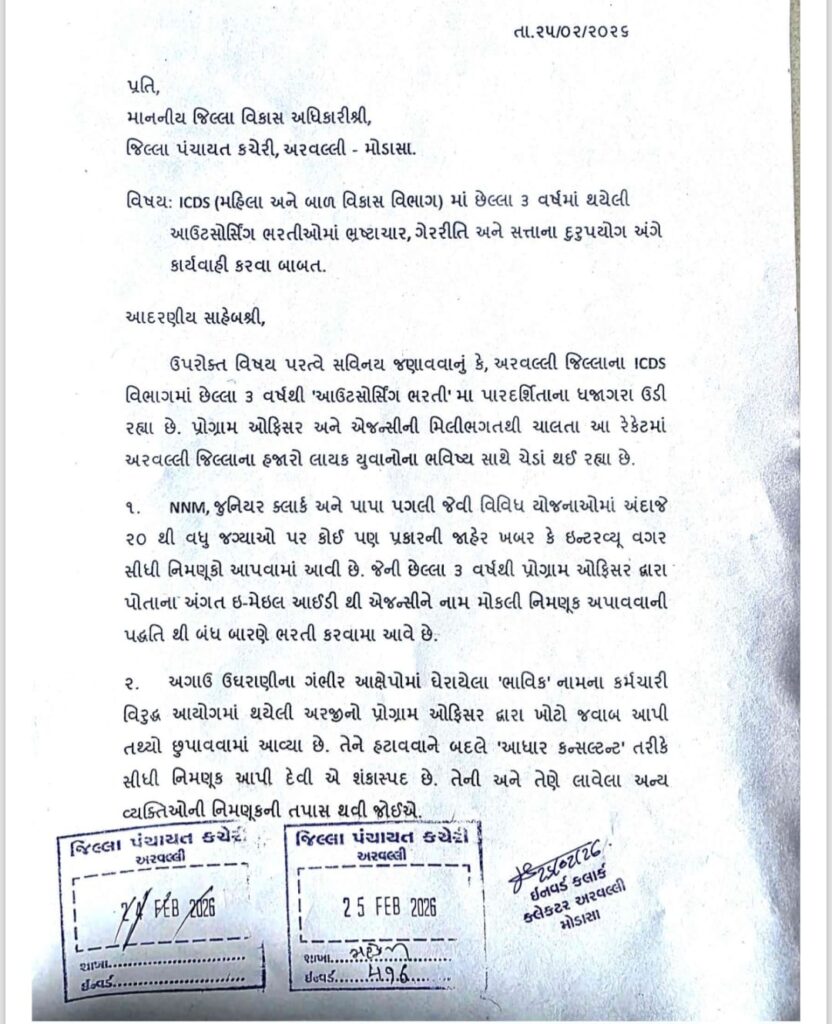 તા.૨૫/૦૨/૨૦૨૬
પ્રતિ,
માનનીય જિલ્લા વિકાસ અધિકારીશ્રી,
જિલ્લા પંચાયત કચેરી, અરવલ્લી - મોડાસા.
વિષય: ICDS (મહિલા અને બાળ વિકાસ વિભાગ) માં છેલ્લા ૩ વર્ષમાં થયેલી
આઉટસોર્સિંગ ભરતીઓમાં ભ્રષ્ટાચાર, ગેરરીતિ અને સત્તાના દુરુપયોગ અંગે
કાર્યવાહી કરવા બાબત.
આદરણીય સાહેબશ્રી,
ઉપરોક્ત વિષય પરત્વે સવિનય જણાવવાનું કે, અરવલ્લી જિલ્લાના ICDS
વિભાગમાં છેલ્લા ૩ વર્ષથી 'આઉટસોર્સિંગ ભરતી' મા પારદર્શિતાના ધજાગરા ઉડી
રહ્યા છે. પ્રોગ્રામ ઓફિસર અને એજન્સીની મિલીભગતથી ચાલતા આ રેકેટમાં
અરવલ્લી જિલ્લાના હજારો લાયક યુવાનોના ભવિષ્ય સાથે ચેડાં થઈ રહ્યા છે.
૧. NNM, જુનિયર ક્લાર્ક અને પાપા પગલી જેવી વિવિધ યોજનાઓમાં અંદાજે
૨૦ થી વધુ જગ્યાઓ પર કોઈ પણ પ્રકારની જાહેર ખબર કે ઇન્ટરવ્યૂ વગર
સીધી નિમણૂકો આપવામાં આવી છે. જેની છેલ્લા ૩ વર્ષથી પ્રોગ્રામ ઓફિસર દ્વારા
પોતાના અંગત ઇ-મેઇલ આઈડી થી એજન્સીને નામ મોકલી નિમણૂક અપાવવાની
પદ્ધતિ થી બંધ બારણે ભરતી કરવામા આવે છે.
૨. અગાઉ ઉઘરાણીના ગંભીર આક્ષેપોમાં ઘેરાયેલા 'ભાવિક' નામના કર્મચારી
વિરુદ્ધ આયોગમાં થયેલી અરજીનો પ્રોગ્રામ ઓફિસર દ્વારા ખોટો જવાબ આપી
તથ્યો છુપાવવામાં આવ્યા છે. તેને હટાવવાને બદલે 'આધાર કન્સલ્ટન્ટ' તરીકે
સીધી નિમણૂક આપી દેવી એ શંકાસ્પદ છે. તેની અને તેણે લાવેલા અન્ય
વ્યક્તિઓની નિમણૂકની તપાસ થવી જોઈએ.
જિલ્લા પંચાયત કચેરી
અરવલ્લી
24 FEB 2026
શાખા
ઈન્વર્ડ
જિલ્લા પંચાયત કચેરી
અરવલ્લી
25 FEB 2026
શાખા
ઈન્વર્ડ
25/02/26
ઈનવર્ડ કલાર્ક
કલેકટર અરવલ્લી
મોડાસા